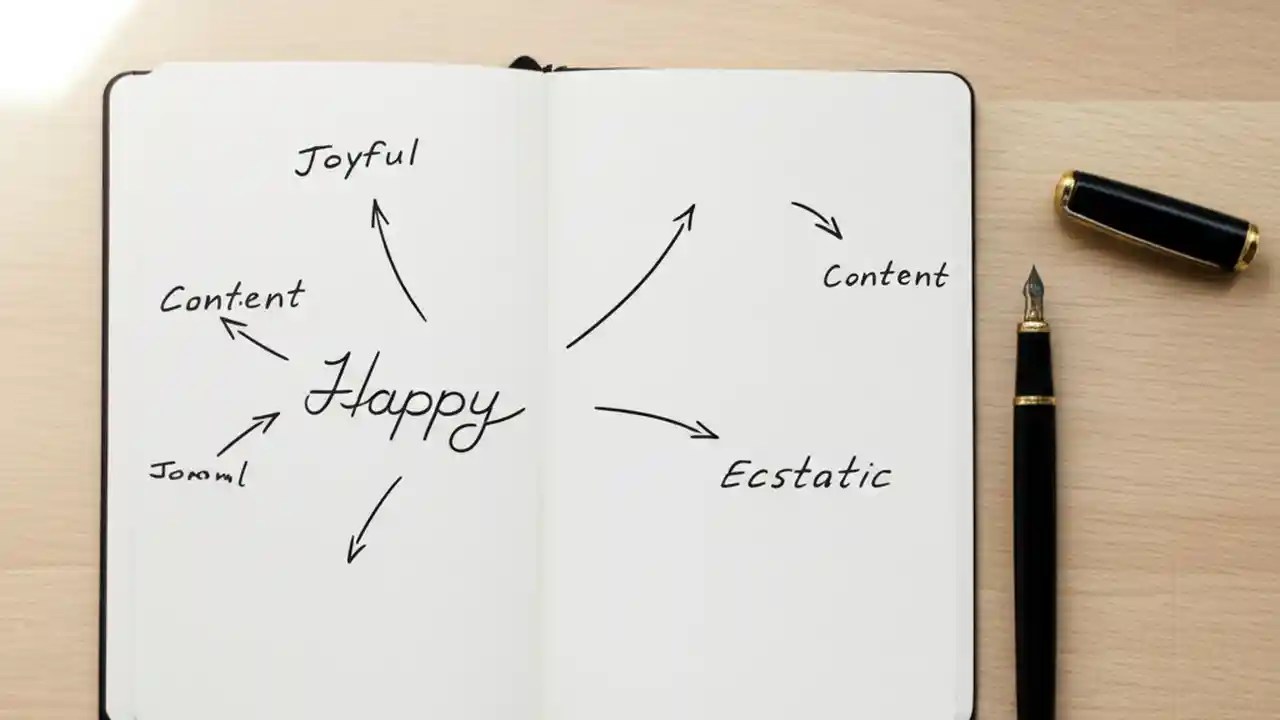 Joyful
Content
Content
Happy
Ecstatic